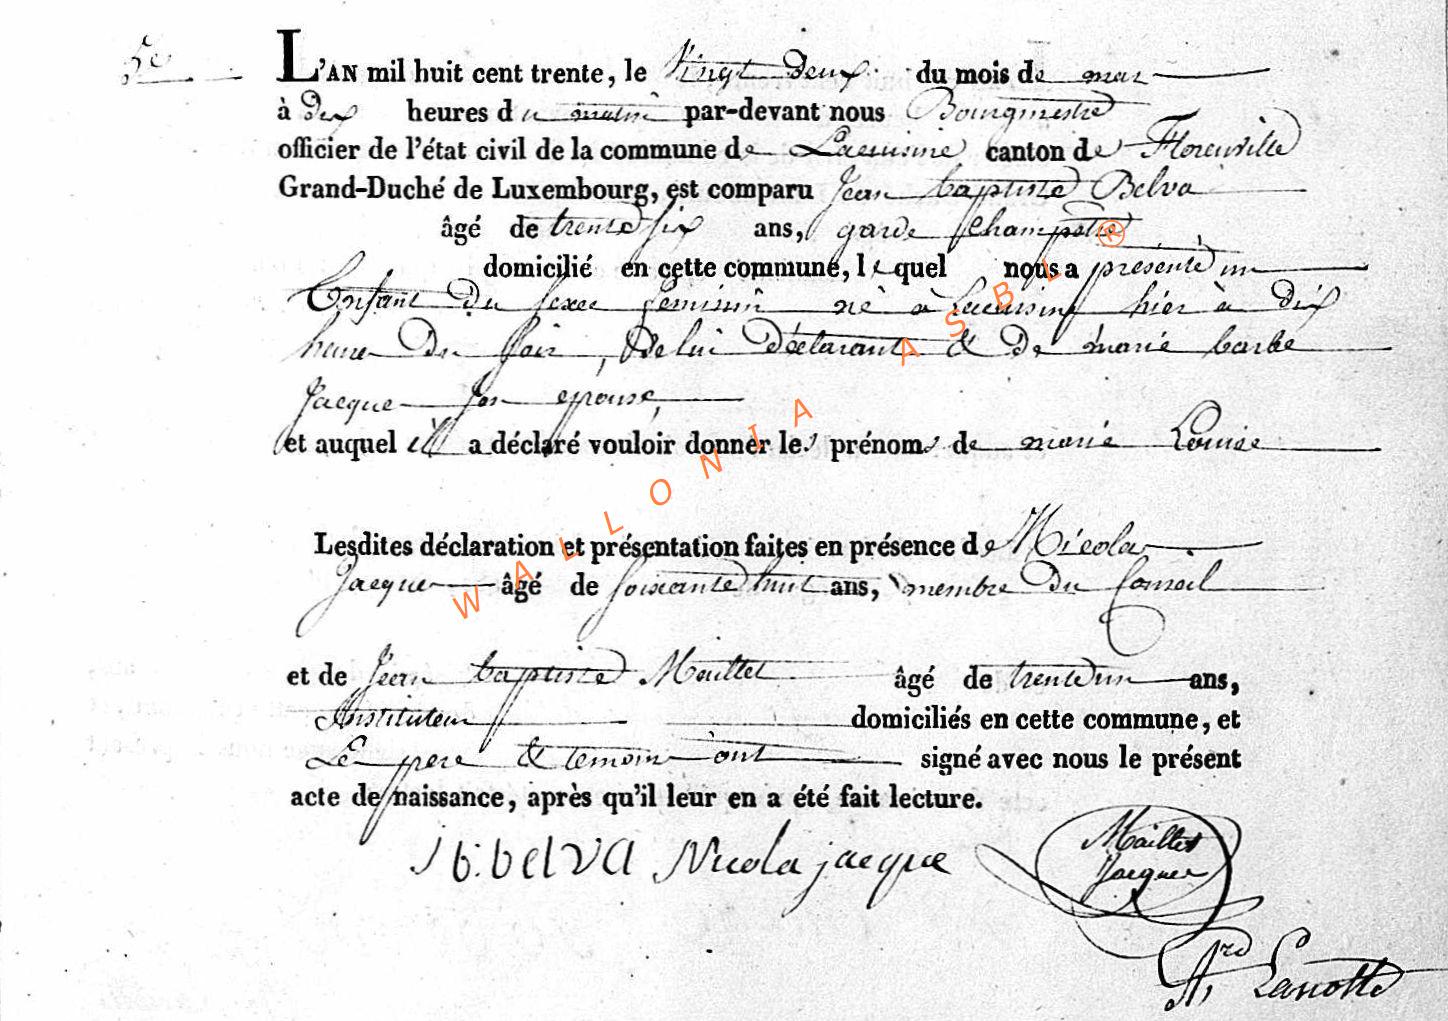 5e
L'AN mil huit cent trente, le Vingt deux du mois de mar
à dix heures du matin par-devant nous Bourgmestre
officier de l'état civil de la commune de Lacuisine canton de Florenville
Grand-Duché de Luxembourg, est comparu Jean baptiste Belva
âgé de trente six ans, garde champêtre
domicilié en cette commune, lequel nous a présenté un
Enfant du sexe feminin né à Lacuisine hier à dix
heure du soir, de lui déclarant & de marie barbe
Jacque son epouse,
et auquel il a déclaré vouloir donner les prénoms de marie Louise
Lesdites déclaration et présentation faites en présence de Nicolas
Jacque âgé de soixante huit ans, membre du Conseil
et de Jean baptiste Maillet âgé de trente un ans,
Instituteur domiciliés en cette commune, et
Le pere & temoin ont signé avec nous le présent
acte de naissance, après qu'il leur en a été fait lecture.
J b: belva Nicola jacque Maillet
Jacques
Lanotte
WALLONIA ASBL ®